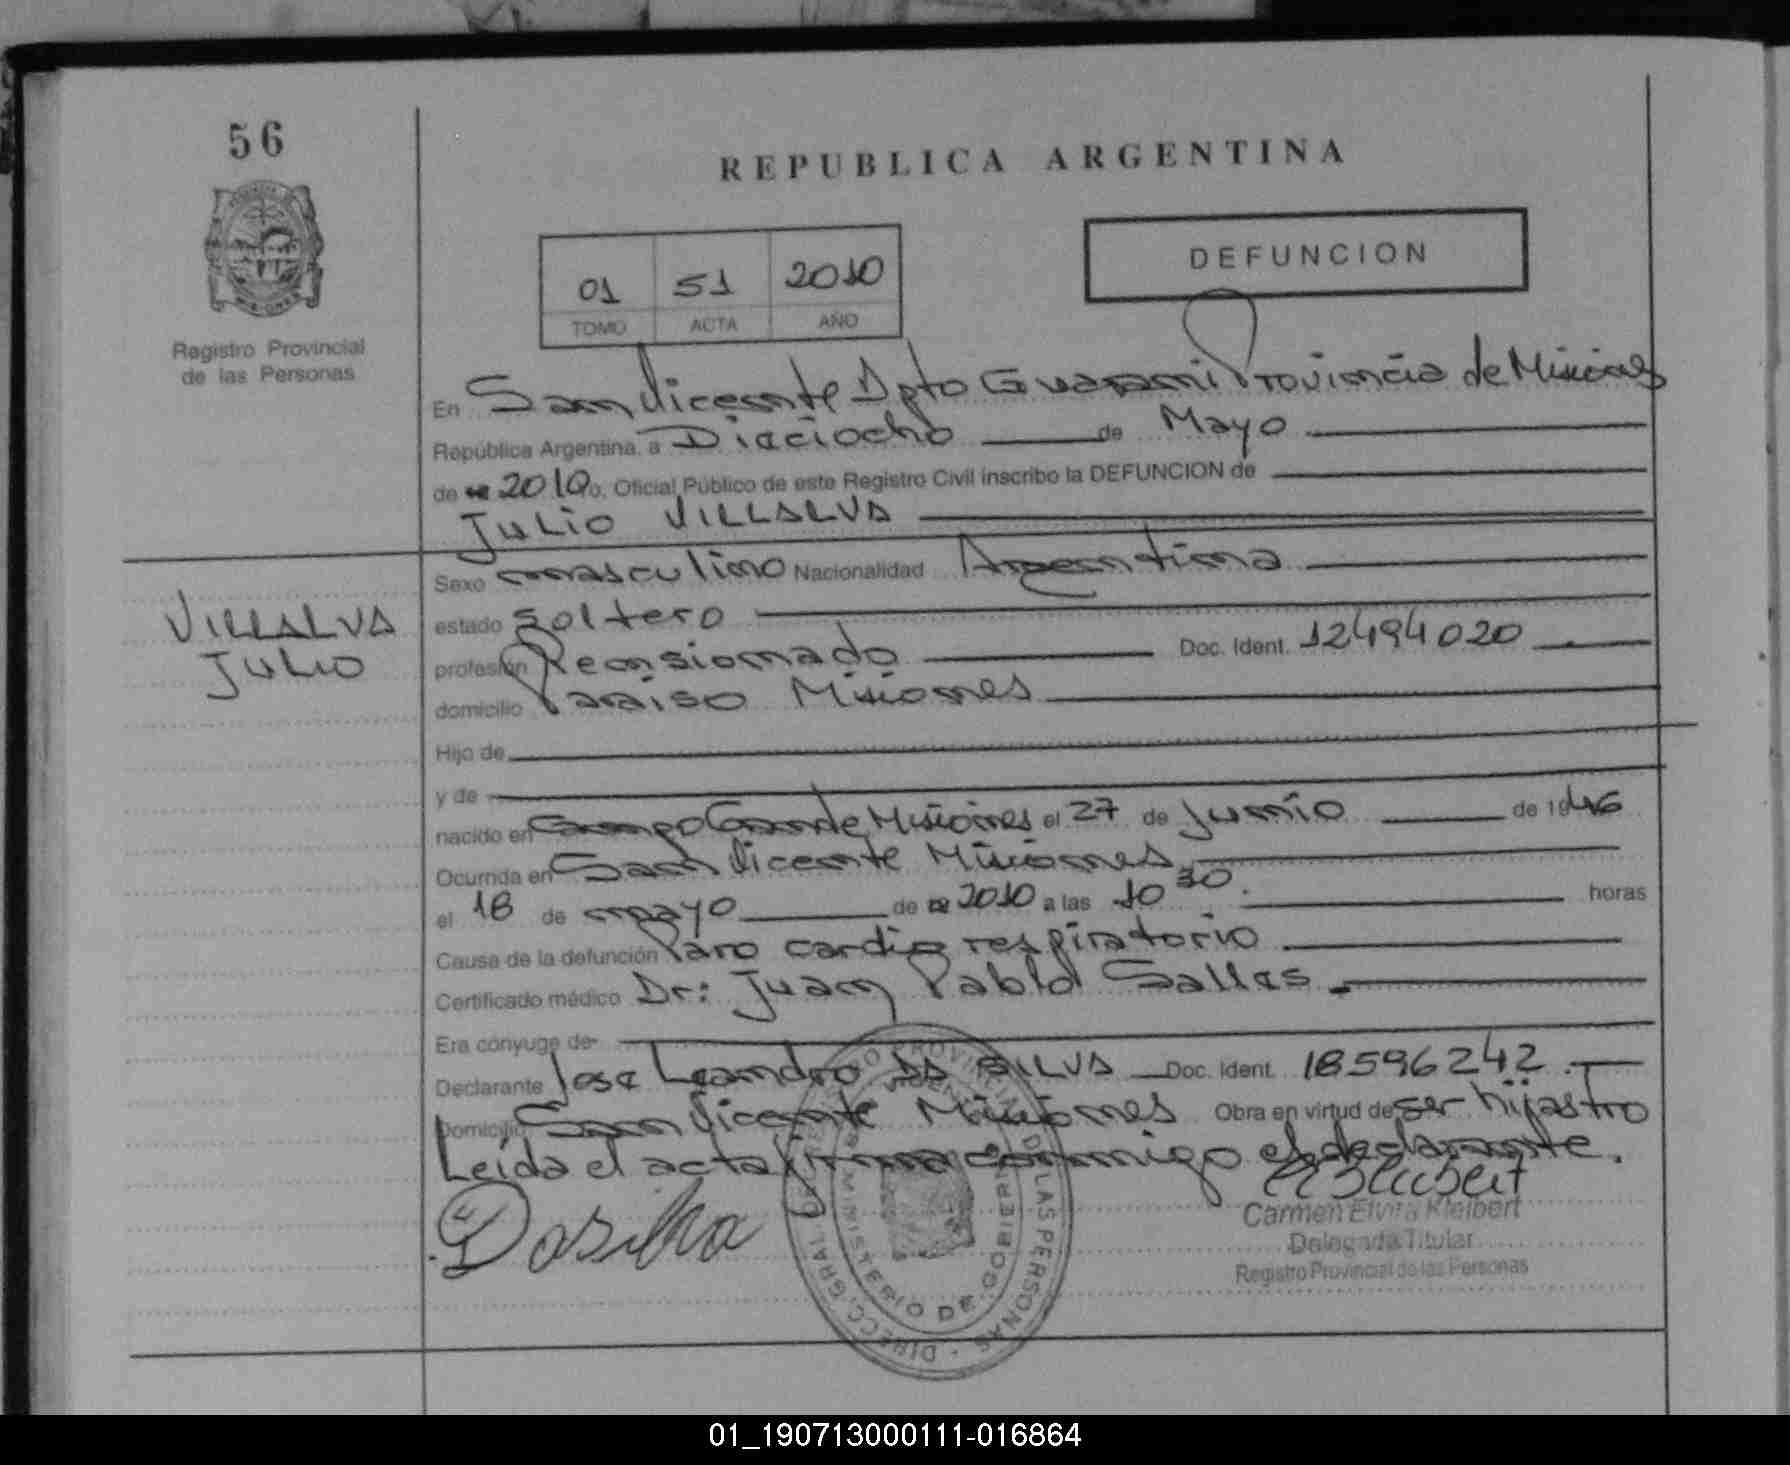 56
REPUBLICA ARGENTINA
Registro Provincial
de las Personas
01 51 2010
TOMO ACTA AÑO
DEFUNCION
En San Vicente Dpto Guarani Provincia de Misiones
República Argentina, a Dieciocho de Mayo
de 2010 o, Oficial Público de este Registro Civil inscribo la DEFUNCION de
JULIO VILLALVA
VILLALVA
JULIO
Sexo masculino Nacionalidad Argentina
estado soltero
profesión Pensionado Doc. Ident. 12494020
domicilio Paraiso Misiones
Hijo de
y de
nacido en Campo Grande Misiones el 27 de Junio de 1946
Ocurrida en San Vicente Misiones
el 18 de mayo de 2010 a las 10 30 horas
Causa de la defunción Paro cardio respiratorio
Certificado médico Dr: Juan Pablo Sallas
Era cónyuge de
Declarante Jose Leandro DA SILVA Doc. Ident. 18596242
Domicilio San Vicente Misiones Obra en virtud de ser hijastro
Leída el acta firma conmigo el declarante.
Dasilva
Carmen Elvira Kleibert
Delegada Titular
Registro Provincial de las Personas
DIRECC. GRAL. REGISTRO PROVINCIAL DE LAS PERSONAS
MINISTERIO DE GOBIERNO
01_190713000111-016864